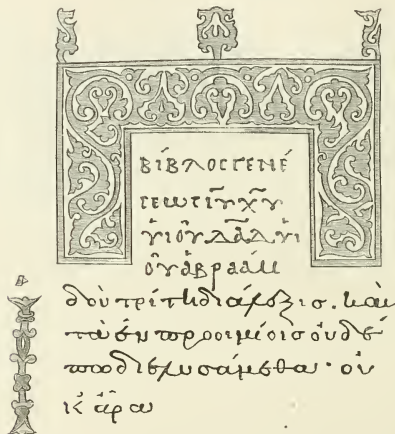 ΒΙΒΛΟCΓΕΝΕ
CΕωCΙ̅Υ̅Χ̅Υ̅
ΥΙΟΥΔΑ̅Δ̅ΥΙ
ΟΥΑΒΡΑΑΜ
Ἰδοὺ τρίτη διάλεξισ. καὶ
τὰ ἐν προοιμίοισ οὐδέ
πω διελυσάμεθα· οὐ
κ ἄρα